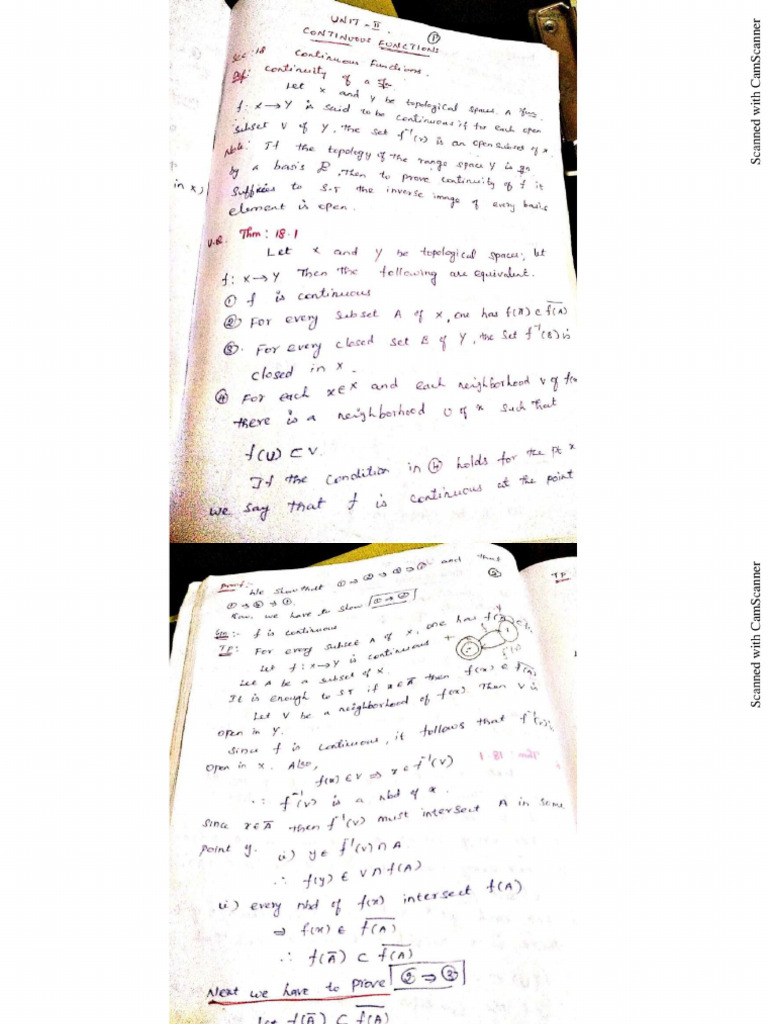 UNIT - II.
CONTINUOUS FUNCTIONS
Sec: 18 Continuous Functions.
Def: Continuity of a fn.
Let X and Y be topological spaces. A
f: X → Y is said to be continuous if for each open
subset V of Y, the set f⁻¹(V) is an open subset of X.
Note: If the topology of the range space Y is
by a basis B, then to prove continuity of f it
Suffices to S.T the inverse image of every basis
element is open.
in X)
V.Q. Thm: 18.1
Let X and Y be topological spaces, let
f: X → Y Then the following are equivalent.
① f is continuous
② For every subset A of X, one has f(A̅) ⊂ \overline{f(A)}
③. For every closed set B of Y, the set f⁻¹(B) is
closed in X.
④ For each x∈X and each neighborhood V of f(x
there is a neighborhood U of x such that
f(U) ⊂ V.
If the condition in ④ holds for the pt x
we say that f is continuous at the point
Proof:- We show that ① ⇒ ② ⇒ ③ ⇒ ① and that
① ⇒ ④ ⇒ ①.
Now, we have to show ① ⇒ ②
:- f is continuous
T.P: For every subset A of X, one has
Let f: X → Y is continuous
Let A be a subset of X.
It is enough to S.T if x∈A̅ then f(x) ∈ \overline{f(A)}
Let V be a neighborhood of f(x). Then V is
open in Y.
Since f is continuous, it follows that f⁻¹(V) is
open in X. Also,
f(x) ∈ V ⇒ x ∈ f⁻¹(V)
∴ f⁻¹(V) is a nbd of x.
Since x∈A̅ then f⁻¹(V) must intersect A in some
point y.
ii) y∈ f⁻¹(V) ∩ A
∴ f(y) ∈ V ∩ f(A)
ii) every nbd of f(x) intersect f(A)
⇒ f(x) ∈ \overline{f(A)}
∴ f(A̅) ⊂ \overline{f(A)}
Next we have to prove ② ⇒ ③
Let f(A̅) ⊂ \overline{f(A)}
T.P
Scanned with CamScanner
Scanned with CamScanner